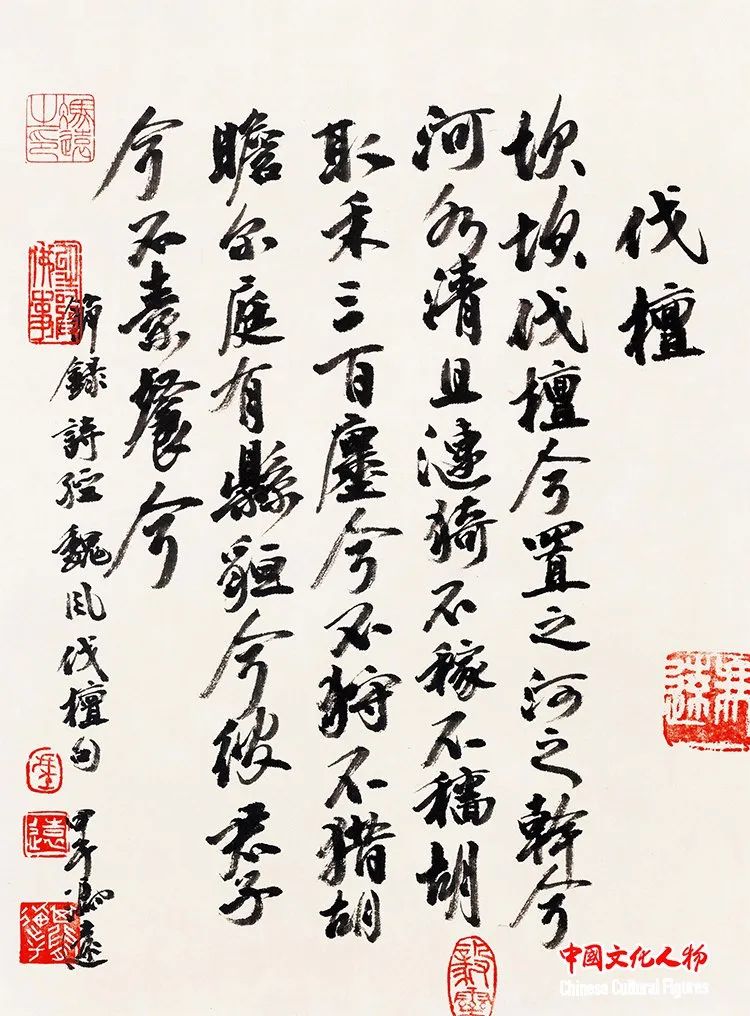 伐檀
坎坎伐檀兮置之河之幹兮
河水清且漣猗不稼不穡胡
取禾三百廛兮不狩不猎胡
瞻尔庭有縣貆兮彼君子
兮不素餐兮
節録詩經魏风伐檀句
甲午馮遠
馮遠之印
遠
中国文化人物
Chinese Cultural Figures